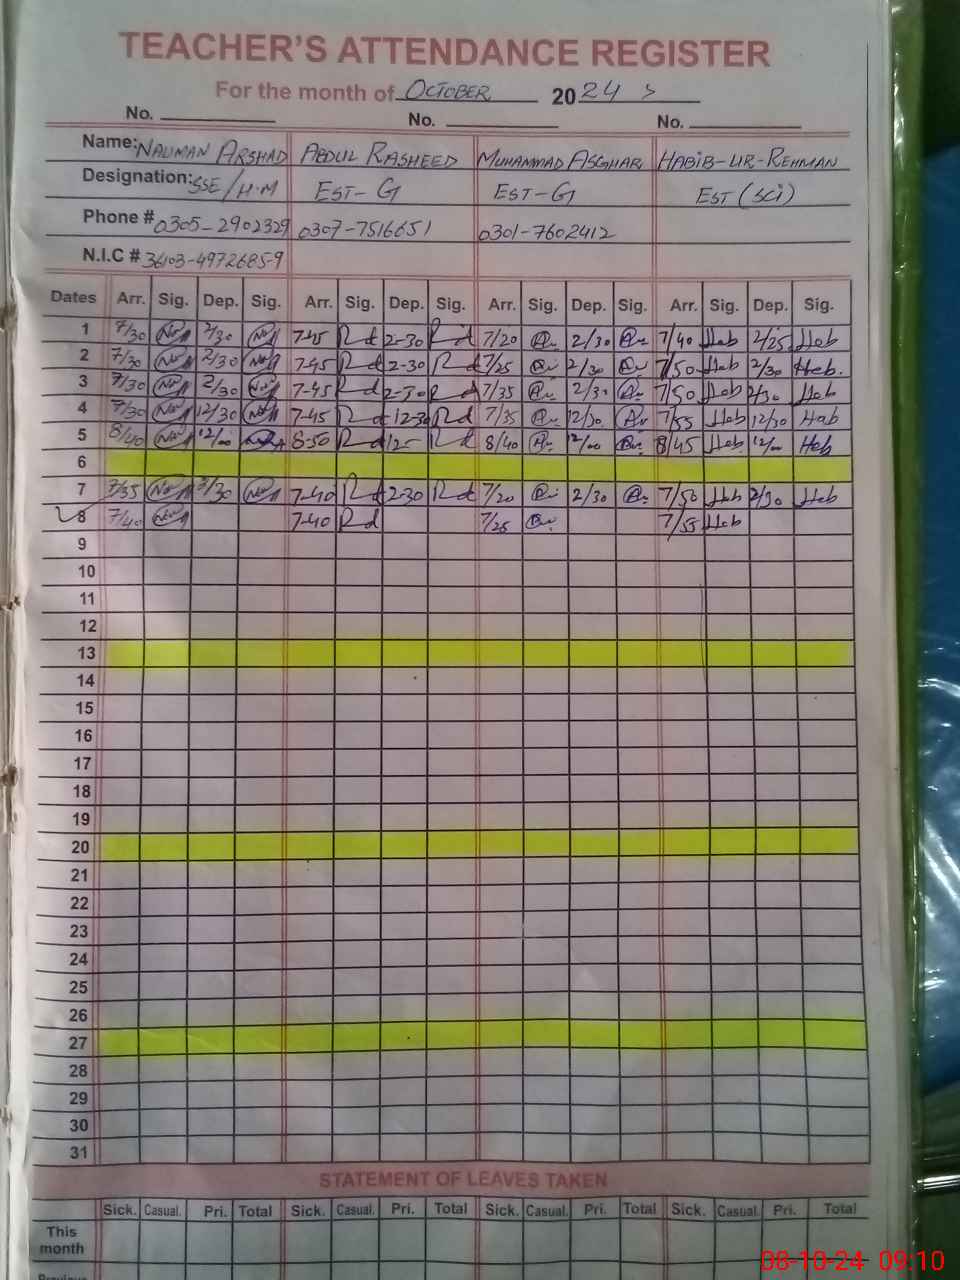 TEACHER'S ATTENDANCE REGISTER
For the month of OCTOBER 2024
No. No. No.
Name: NAUMAN ARSHAD ABDUL RASHEED MUHAMMAD ASGHAR HABIB-UR-REHMAN
Designation: SSE/H.M EST-G EST-G EST (SCi)
Phone # 0305-2902329 0307-7516651 0301-7602412
N.I.C # 36103-4972685-9
Dates Arr. Sig. Dep. Sig. Arr. Sig. Dep. Sig. Arr. Sig. Dep. Sig. Arr. Sig. Dep. Sig.
1 7/30 2/30 7-45 Rd 2-30 Rd 7/20 2/30 7/40 Heb 2/25 Heb
2 7/30 2/30 7-45 Rd 2-30 Rd 7/25 2/30 7/50 Heb 2/30 Heb.
3 7/30 2/30 7-45 Rd 2-30 Rd 7/35 2/30 7/50 Heb 2/30 Heb
4 7/30 12/30 7-45 Rd 12-30 Rd 7/35 12/30 7/55 Heb 12/30 Hab
5 8/40 12/00 8-50 Rd 12- Rd 8/40 12/00 8/45 Heb 12/00 Heb
6
7 7/35 2/30 7-40 Rd 2-30 Rd 7/20 2/30 7/50 Heb 2/30 Heb
8 7/40 7-40 Rd 7/25 7/55 Heb
9
10
11
12
13
14
15
16
17
18
19
20
21
22
23
24
25
26
27
28
29
30
31
STATEMENT OF LEAVES TAKEN
Sick. Casual. Pri. Total Sick. Casual. Pri. Total Sick. Casual. Pri. Total Sick. Casual. Pri. Total
This
month
Previous
08-10-24 09:10